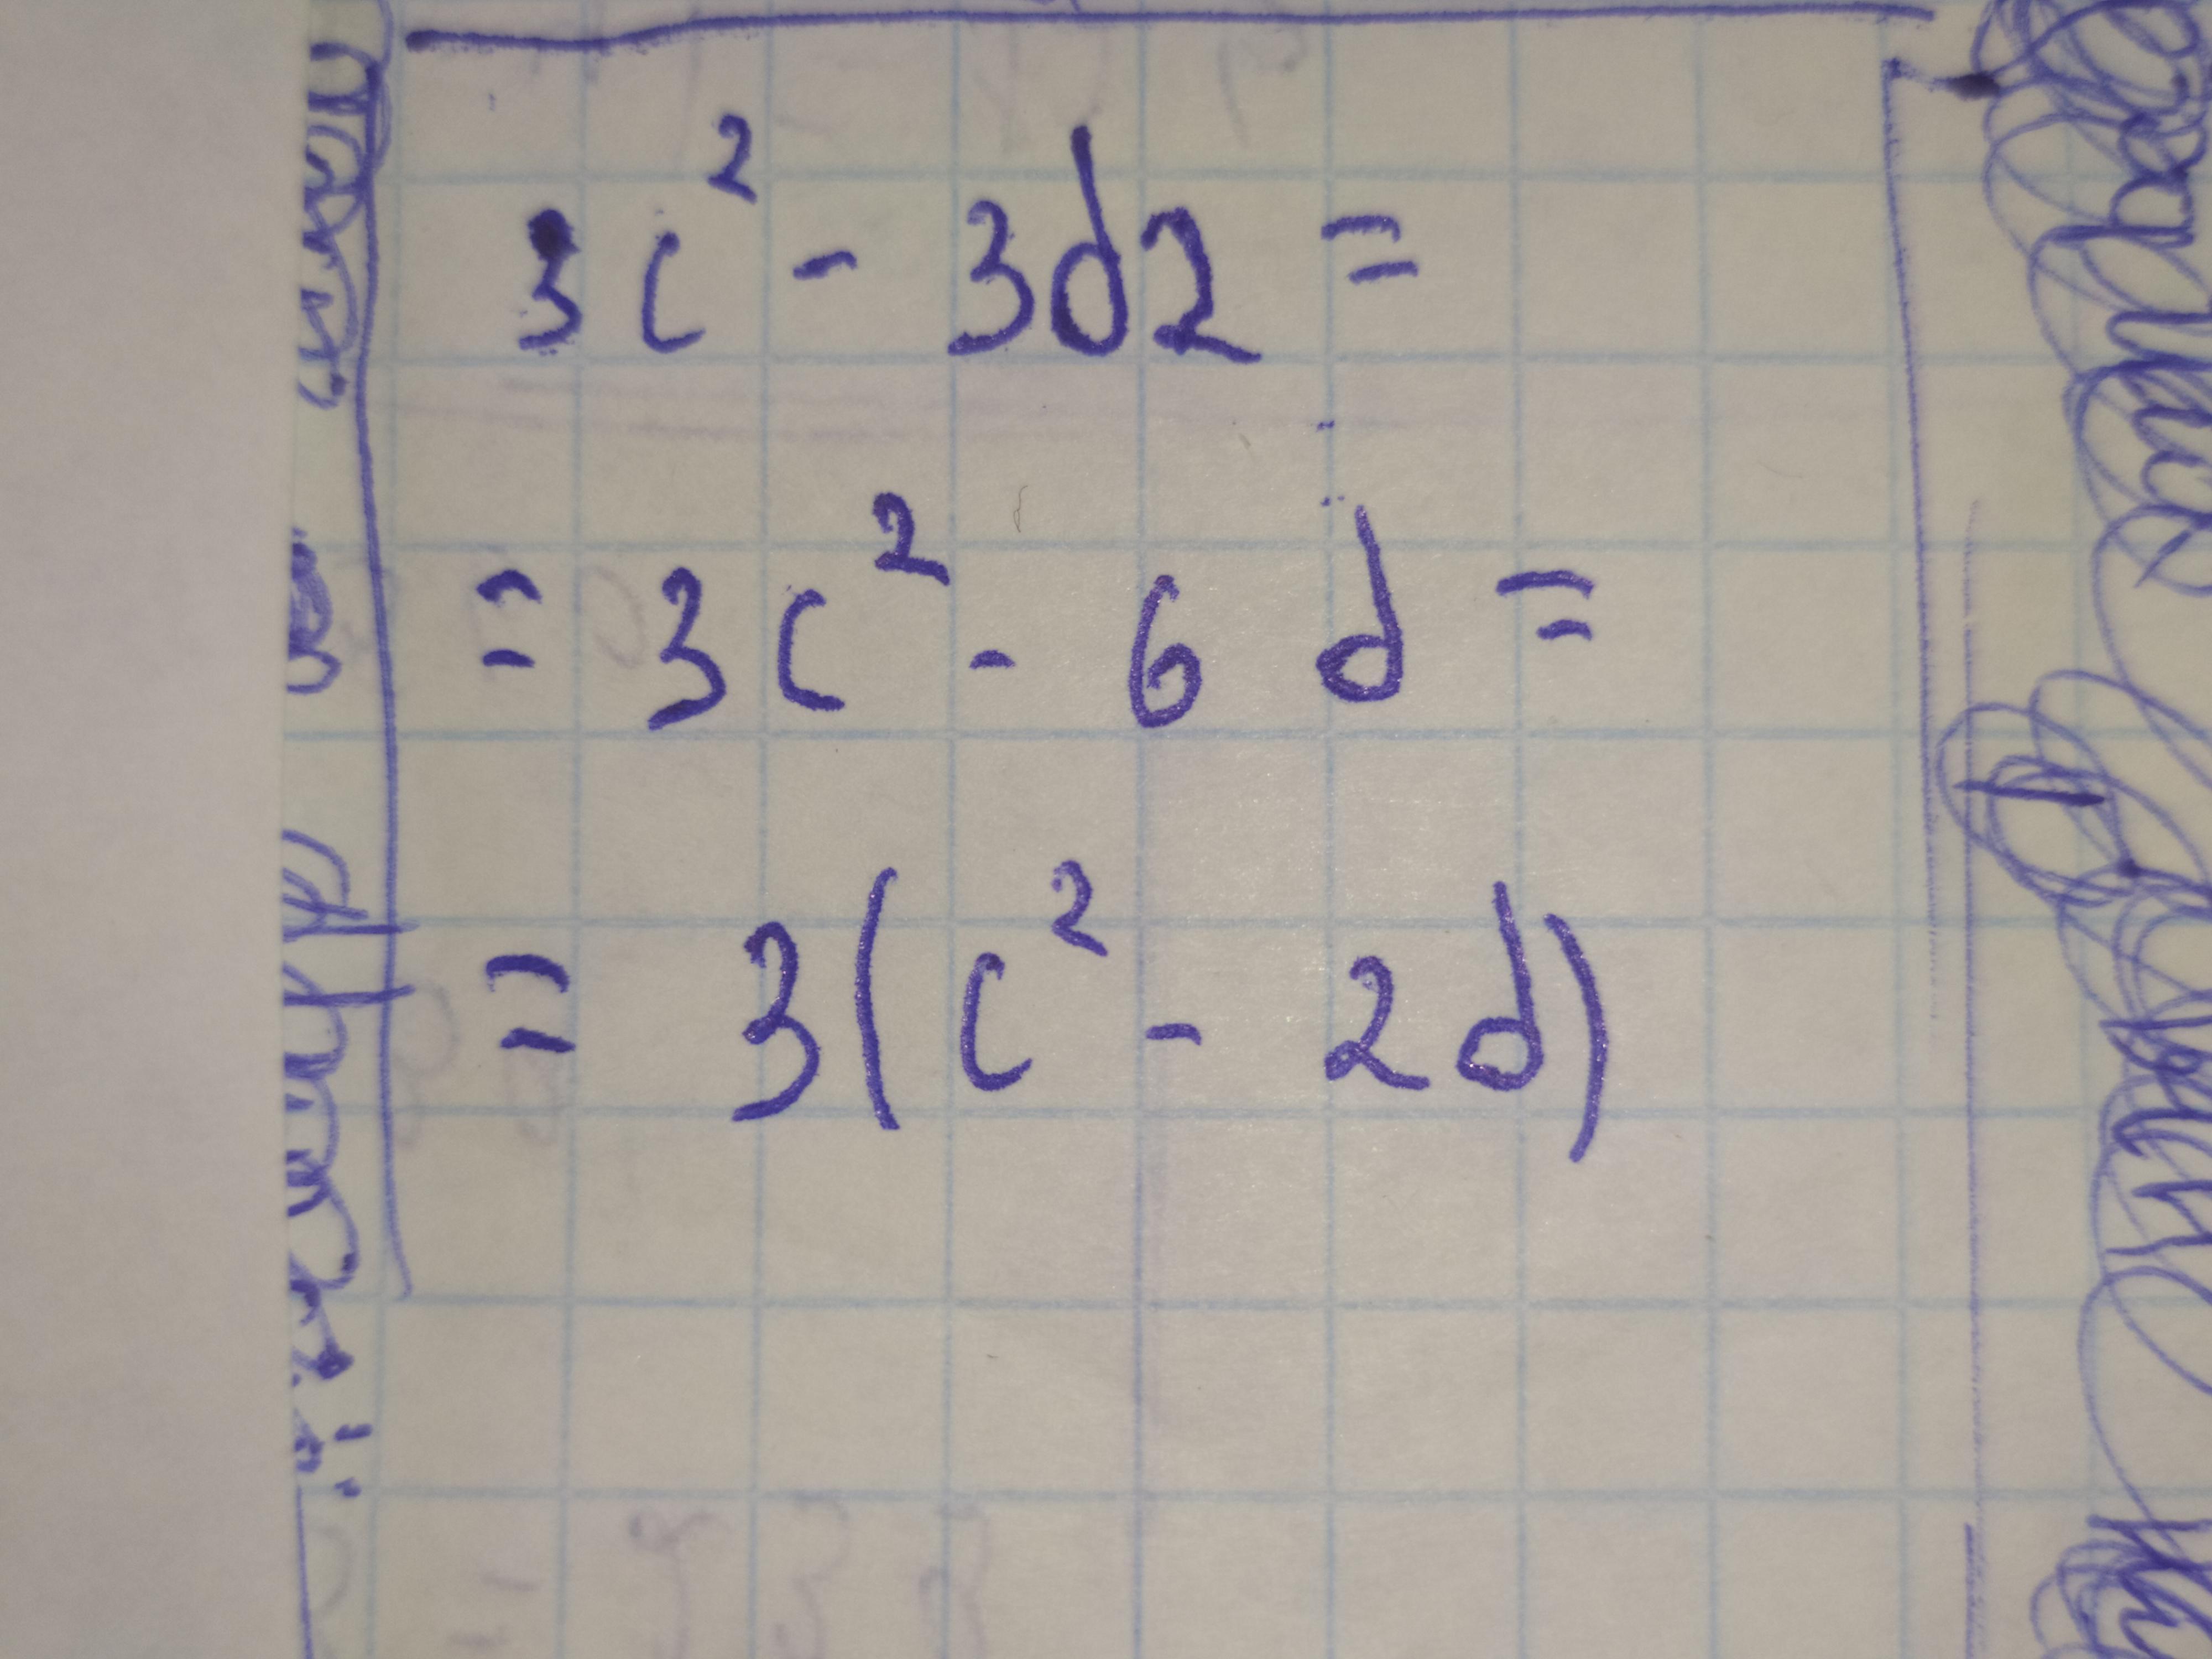 3c² - 3d2 =
= 3c² - 6 d =
= 3(c² - 2d)